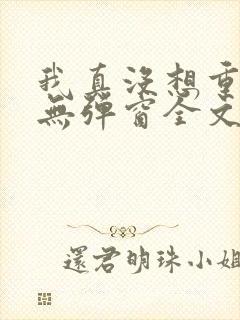 我真沒想重
無彈窗全文
還君明珠小姐